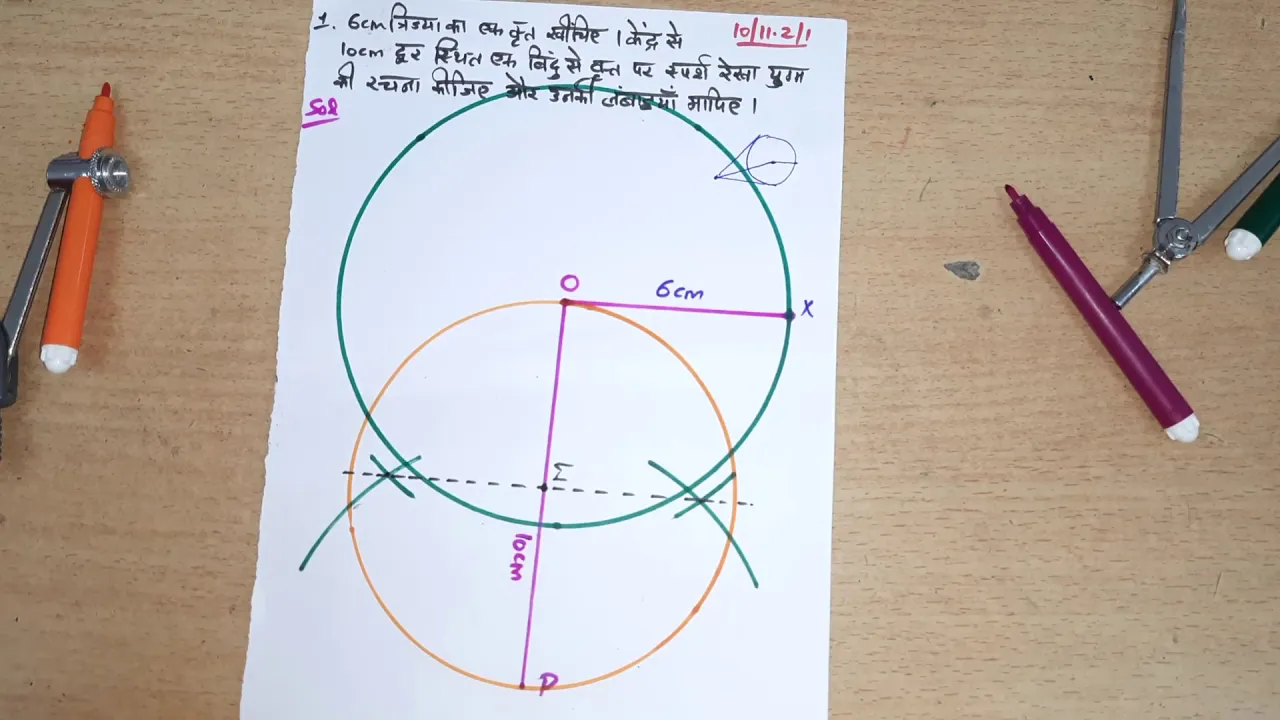 1. 6cm त्रिज्या का एक वृत खींचिए । केंद्र से
10/11.2/1
10cm दूर स्थित एक बिंदु से वृत्त पर स्पर्श रेखा युग्म
की रचना कीजिए और उनकी लंबाइयाँ मापिए ।
Sol
O
6cm
X
10cm
P